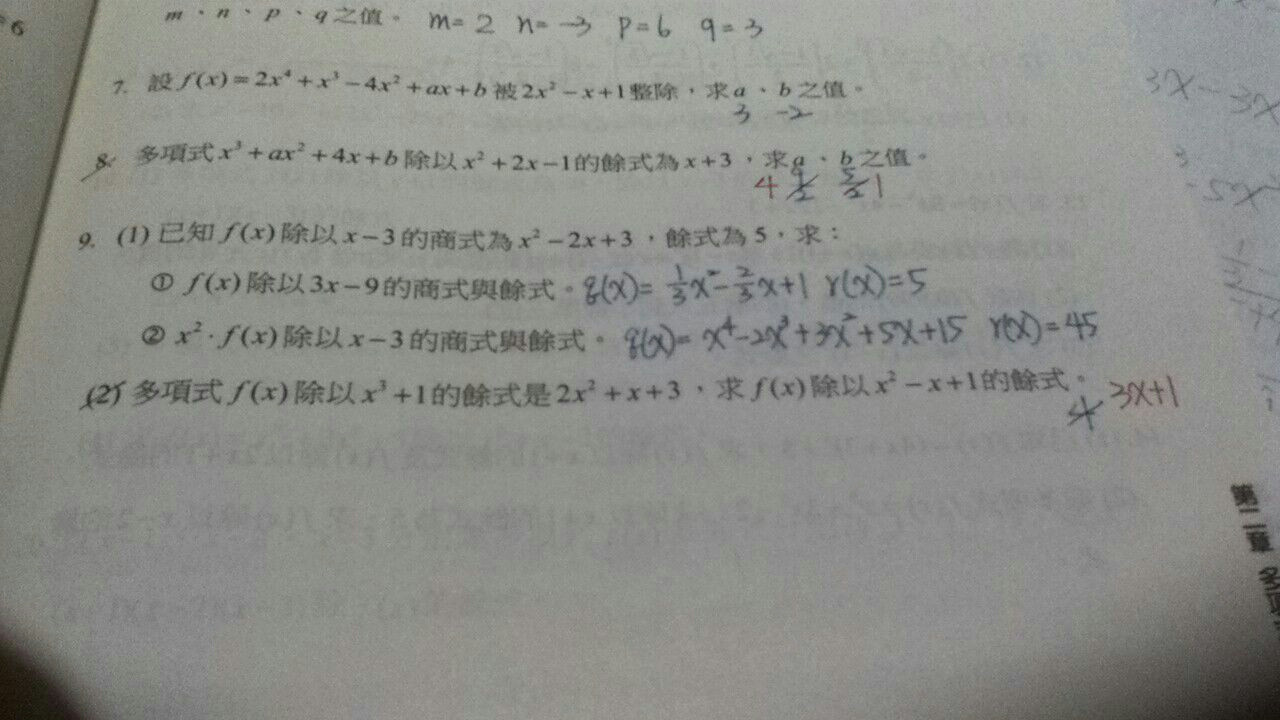 6
m、n、p、q之值。 m=2 n=-3 p=6 q=3
7. 設f(x)=2x⁴+x³-4x²+ax+b被2x²-x+1整除，求a、b之值。
3 -2
8. 多項式x³+ax²+4x+b除以x²+2x-1的餘式為x+3，求a、b之值。
4 1
9. (1)已知f(x)除以x-3的商式為x²-2x+3，餘式為5，求：
① f(x)除以3x-9的商式與餘式。g(x)= 1/3x²-2/3x+1 r(x)=5
② x²·f(x)除以x-3的商式與餘式。 g(x)= x⁴-2x³+3x²+5x+15 r(x)=45
(2) 多項式f(x)除以x³+1的餘式是2x²+x+3，求f(x)除以x²-x+1的餘式。
4 3x+1
3x-3x
第二章